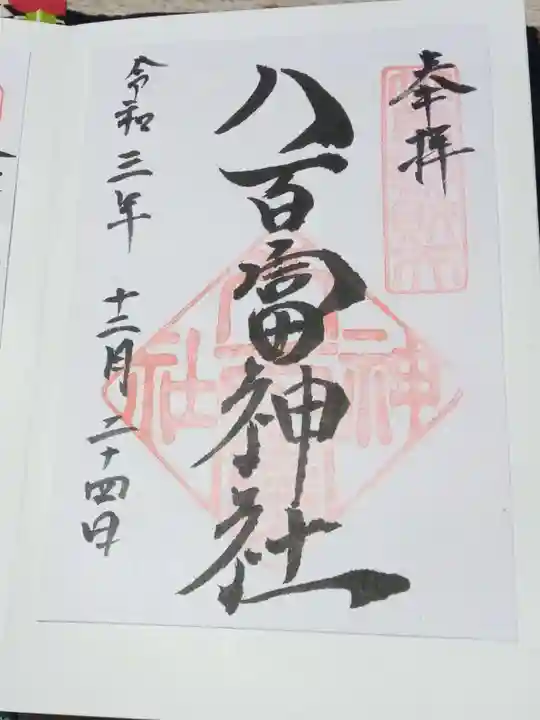 奉拝
八百富神社
令和三年 十二月 二十四日